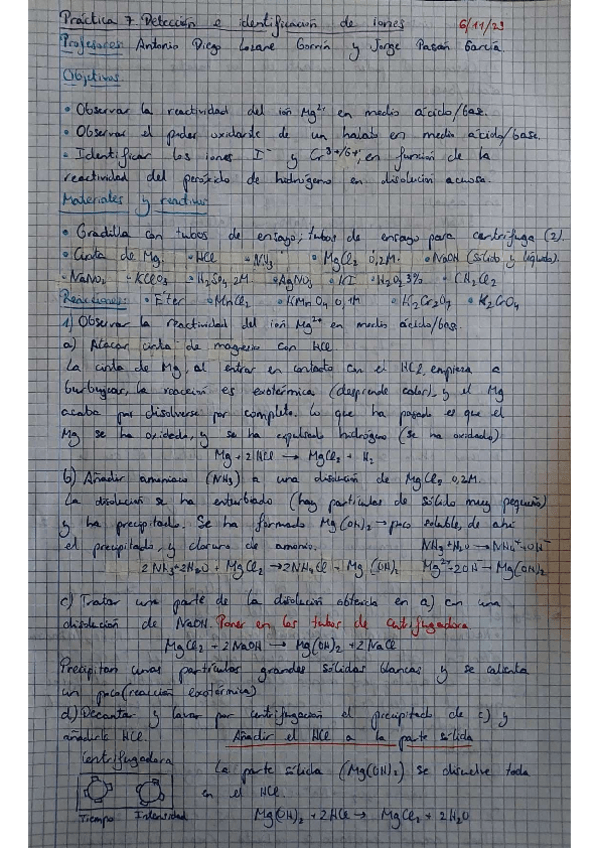 Práctica 7. Detección e identificación de iones 6/11/23
Profesores: Antonio Diego Lozano Gorrín y Jorge Pasán García
Objetivos
• Observar la reactividad del ión Mg²⁺ en medio ácido/base.
• Observar el poder oxidante de un halato en medio ácido/base.
• Identificar los iones I⁻ y Cr³⁺/⁶⁺, en función de la
reactividad del peróxido de hidrógeno en disolución acuosa.
Materiales y reactivos
• Gradilla con tubos de ensayo; tubos de ensayo para centrífuga (2).
• Cinta de Mg. • HCl • NH₃ • MgCl₂ 0,2M. • NaOH (Sólido y líquido).
• NaNO₂ • KClO₃ • H₂SO₄ 2M • AgNO₃ • KI • H₂O₂ 3% • CH₂Cl₂
Reacciones: • Éter • MnCl₂ • KMnO₄ 0,1M • K₂Cr₂O₇ • K₂CrO₄
1) Observar la reactividad del ión Mg²⁺ en medio ácido/base.
a) Atacar cinta de magnesio con HCl.
La cinta de Mg, al entrar en contacto con el HCl, empieza a
burbujear, la reacción es exotérmica (desprende calor), y el Mg
acaba por disolverse por completo. Lo que ha pasado es que el
Mg se ha oxidado, y se ha expulsado hidrógeno (se ha oxidado)
Mg + 2HCl → MgCl₂ + H₂
b) Añadir amoniaco (NH₃) a una disolución de MgCl₂ 0,2M.
La disolución se ha enturbado (hay partículas de sólido muy pequeñas)
y ha precipitado. Se ha formado Mg(OH)₂ → poco soluble, de ahí
el precipitado, y cloruro de amonio. NH₃ + H₂O → NH₄⁺ + OH⁻
2NH₃ + 2H₂O + MgCl₂ → 2NH₄Cl + Mg(OH)₂ Mg²⁺ + 2OH⁻ → Mg(OH)₂
c) Tratar una parte de la disolución obtenida en a) con una
disolución de NaOH. Poner en los tubos de centrifugadora
MgCl₂ + 2NaOH → Mg(OH)₂ + 2NaCl
Precipitan unas partículas grandes sólidas blancas y se calienta
un poco (reacción exotérmica)
d) Decantar y lavar por centrifugación el precipitado de c) y
añadirle HCl. Añadir el HCl a la parte sólida
Centrifugadora
La parte sólida (Mg(OH)₂) se disuelve toda
en el HCl.
Tiempo Intensidad
Mg(OH)₂ + 2HCl → MgCl₂ + 2H₂O